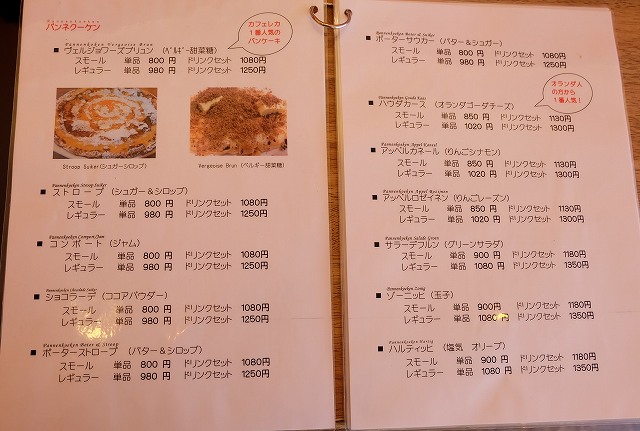 Pannenkoeken
パンネクーケン
カフェレカ
1番人気の
パンケーキ
Pannenkoeken Vergeoise Brun
■ ヴェルジョワーズブリュン (ﾍﾞﾙｷﾞｰ甜菜糖)
スモール 単品 800 円 ドリンクセット 1080円
レギュラー 単品 980 円 ドリンクセット 1250円
Stroop Suiker(シュガーシロップ)
Vergeoise Brun (ベルギー甜菜糖)
Pannenkoeken Stroop Suiker
■ ストロープ (シュガー＆シロップ)
スモール 単品 800 円 ドリンクセット 1080円
レギュラー 単品 980 円 ドリンクセット 1250円
Pannenkoeken Compote/Jam
■ コンポート (ジャム)
スモール 単品 800 円 ドリンクセット 1080円
レギュラー 単品 980 円 ドリンクセット 1250円
Pannenkoeken Chocolade Suiker
■ ショコラーデ (ココアパウダー)
スモール 単品 800 円 ドリンクセット 1080円
レギュラー 単品 980 円 ドリンクセット 1250円
Pannenkoeken Boter & Stroop
■ ボーターストロープ (バター＆シロップ)
スモール 単品 800 円 ドリンクセット 1080円
レギュラー 単品 980 円 ドリンクセット 1250円
Pannenkoeken Boter & Suiker
■ ボーターサウカー (バター＆シュガー)
スモール 単品 800 円 ドリンクセット 1080円
レギュラー 単品 980 円 ドリンクセット 1250円
オランダ人
の方から
1番人気！
Pannenkoeken Gouda Kaas
■ ハウダカース (オランダゴーダチーズ)
スモール 単品 850 円 ドリンクセット 1130円
レギュラー 単品 1020 円 ドリンクセット 1300円
Pannenkoeken Appel Kaneel
■ アッペルカネール (りんごシナモン)
スモール 単品 850 円 ドリンクセット 1130円
レギュラー 単品 1020 円 ドリンクセット 1300円
Pannenkoeken Appel Rozijnen
■ アッペルロゼイネン (りんごレーズン)
スモール 単品 850 円 ドリンクセット 1130円
レギュラー 単品 1020 円 ドリンクセット 1300円
Pannenkoeken Salade Groen
■ サラーデフルン (グリーンサラダ)
スモール 単品 900 円 ドリンクセット 1180円
レギュラー 単品 1080 円 ドリンクセット 1350円
Pannenkoeken
■ ゾーニッヒ (玉子)
スモール 単品 900円 ドリンクセット 1180円
レギュラー 単品 1080 円 ドリンクセット 1350円
Pannenkoeken Hartig
■ ハルティッヒ (塩気 オリーブ)
スモール 単品 900 円 ドリンクセット 1180円
レギュラー 単品 1080 円 ドリンクセット 1350円